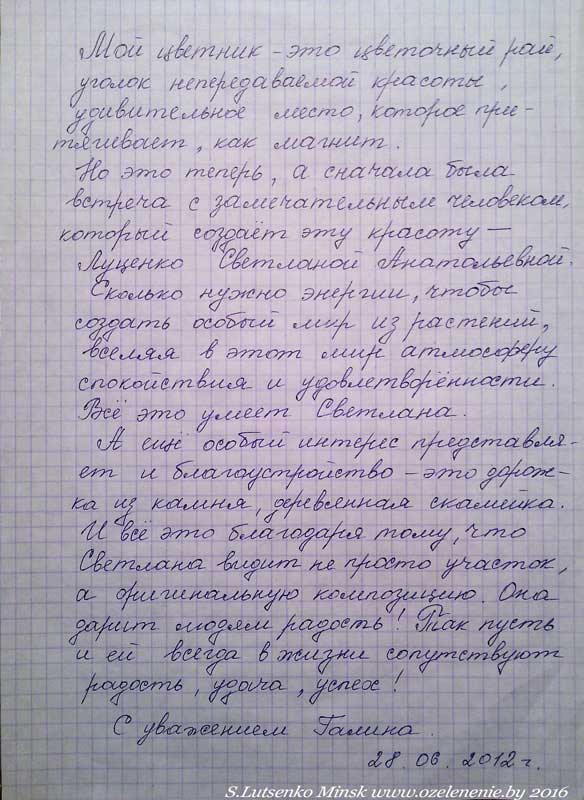 Мой цветник – это цветочный рай,
уголок непередаваемой красоты,
удивительное место, которое при-
тягивает, как магнит.
Но это теперь, а сначала была
встреча с замечательным человеком,
который создаёт эту красоту –
Луценко Светланой Анатольевной.
Сколько нужно энергии, чтобы
создать особый мир из растений,
вселяя в этот мир атмосферу
спокойствия и удовлетворённости.
Всё это умеет Светлана.
А ещё особый интерес представля-
ет и благоустройство – это дорож-
ка из камня, деревянная скамейка.
И всё это благодаря тому, что
Светлана видит не просто участок,
а оригинальную композицию. Она
дарит людям радость! Так пусть
и ей всегда в жизни сопутствуют
радость, удача, успех!
С уважением Галина.
28. 06. 2012 г.
S.Lutsenko Minsk www.ozelenenie.by 2016